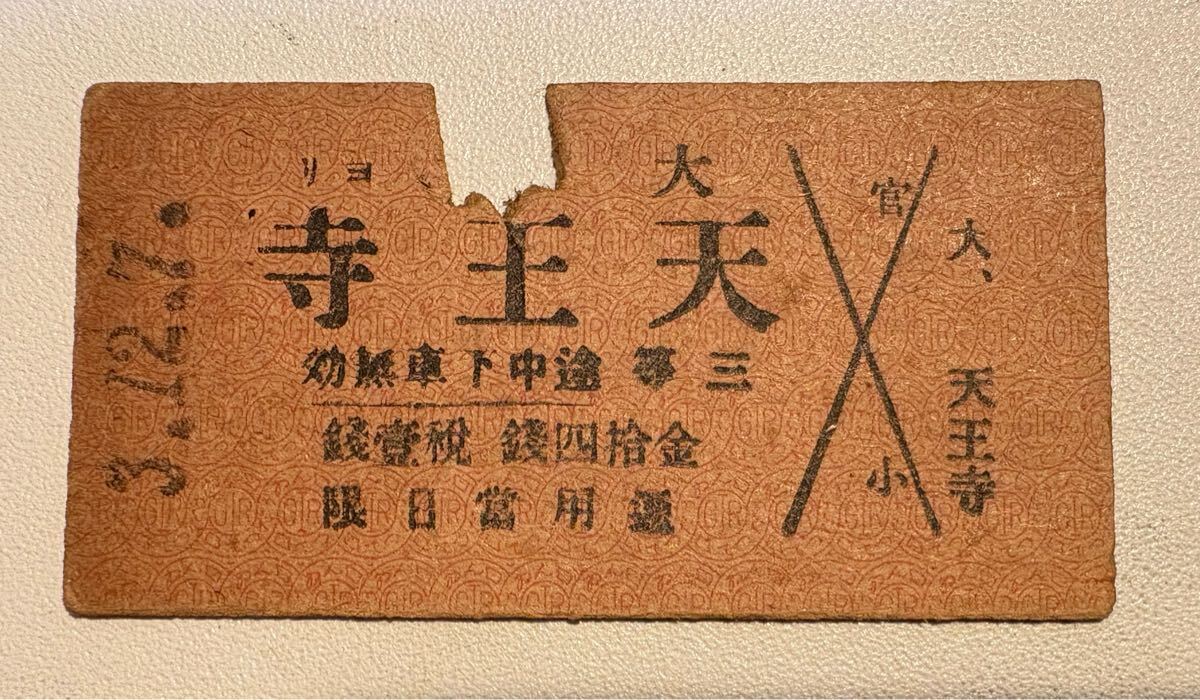 大 ヨリ
天王寺
三等 途中下車無効
金拾四錢 稅壹錢
通用當日限
大、天王寺
官 小
3.12.7.